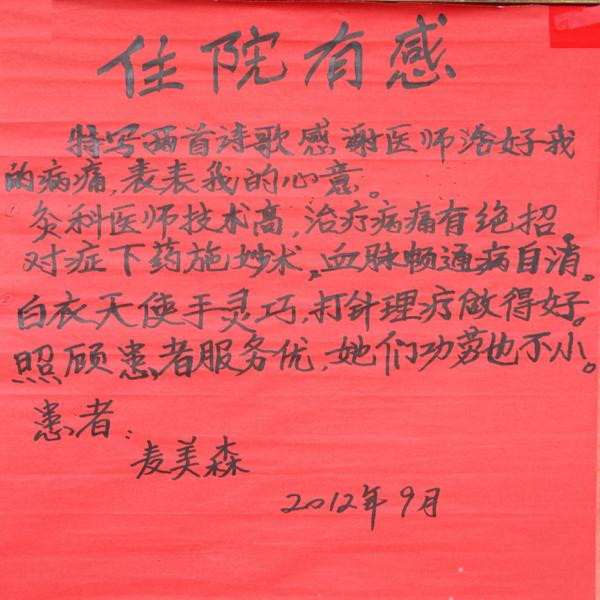 住院有感
特写两首诗歌感谢医师治好我
的病痛，表表我的心意。
灸科医师技术高，治疗病痛有绝招。
对症下药施妙术，血脉畅通病自消。
白衣天使手灵巧，打针理疗做得好。
照顾患者服务优，她们功劳也不小。
患者：
麦美森
2012年9月